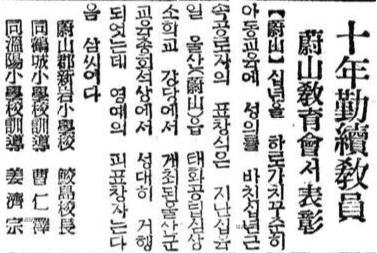 十年勤續敎員
蔚山敎育會서表彰
【蔚山】 십년을 하로가치꾸준히
아동교육에 성의를 바친십년근
속공로자의 표창식은 지난십육
일 울산(蔚山)읍 태화공립심상
소학교 강당에서 개최된울산군
교육총회석상에서 성대히 거행
되엇는데 영예의 피표창자는다
음 삼씨이다
蔚山郡新岩小學校 鮫島校長
同鶴城小學校訓導 曹仁澤
同溫陽小學校訓導 姜濟宗